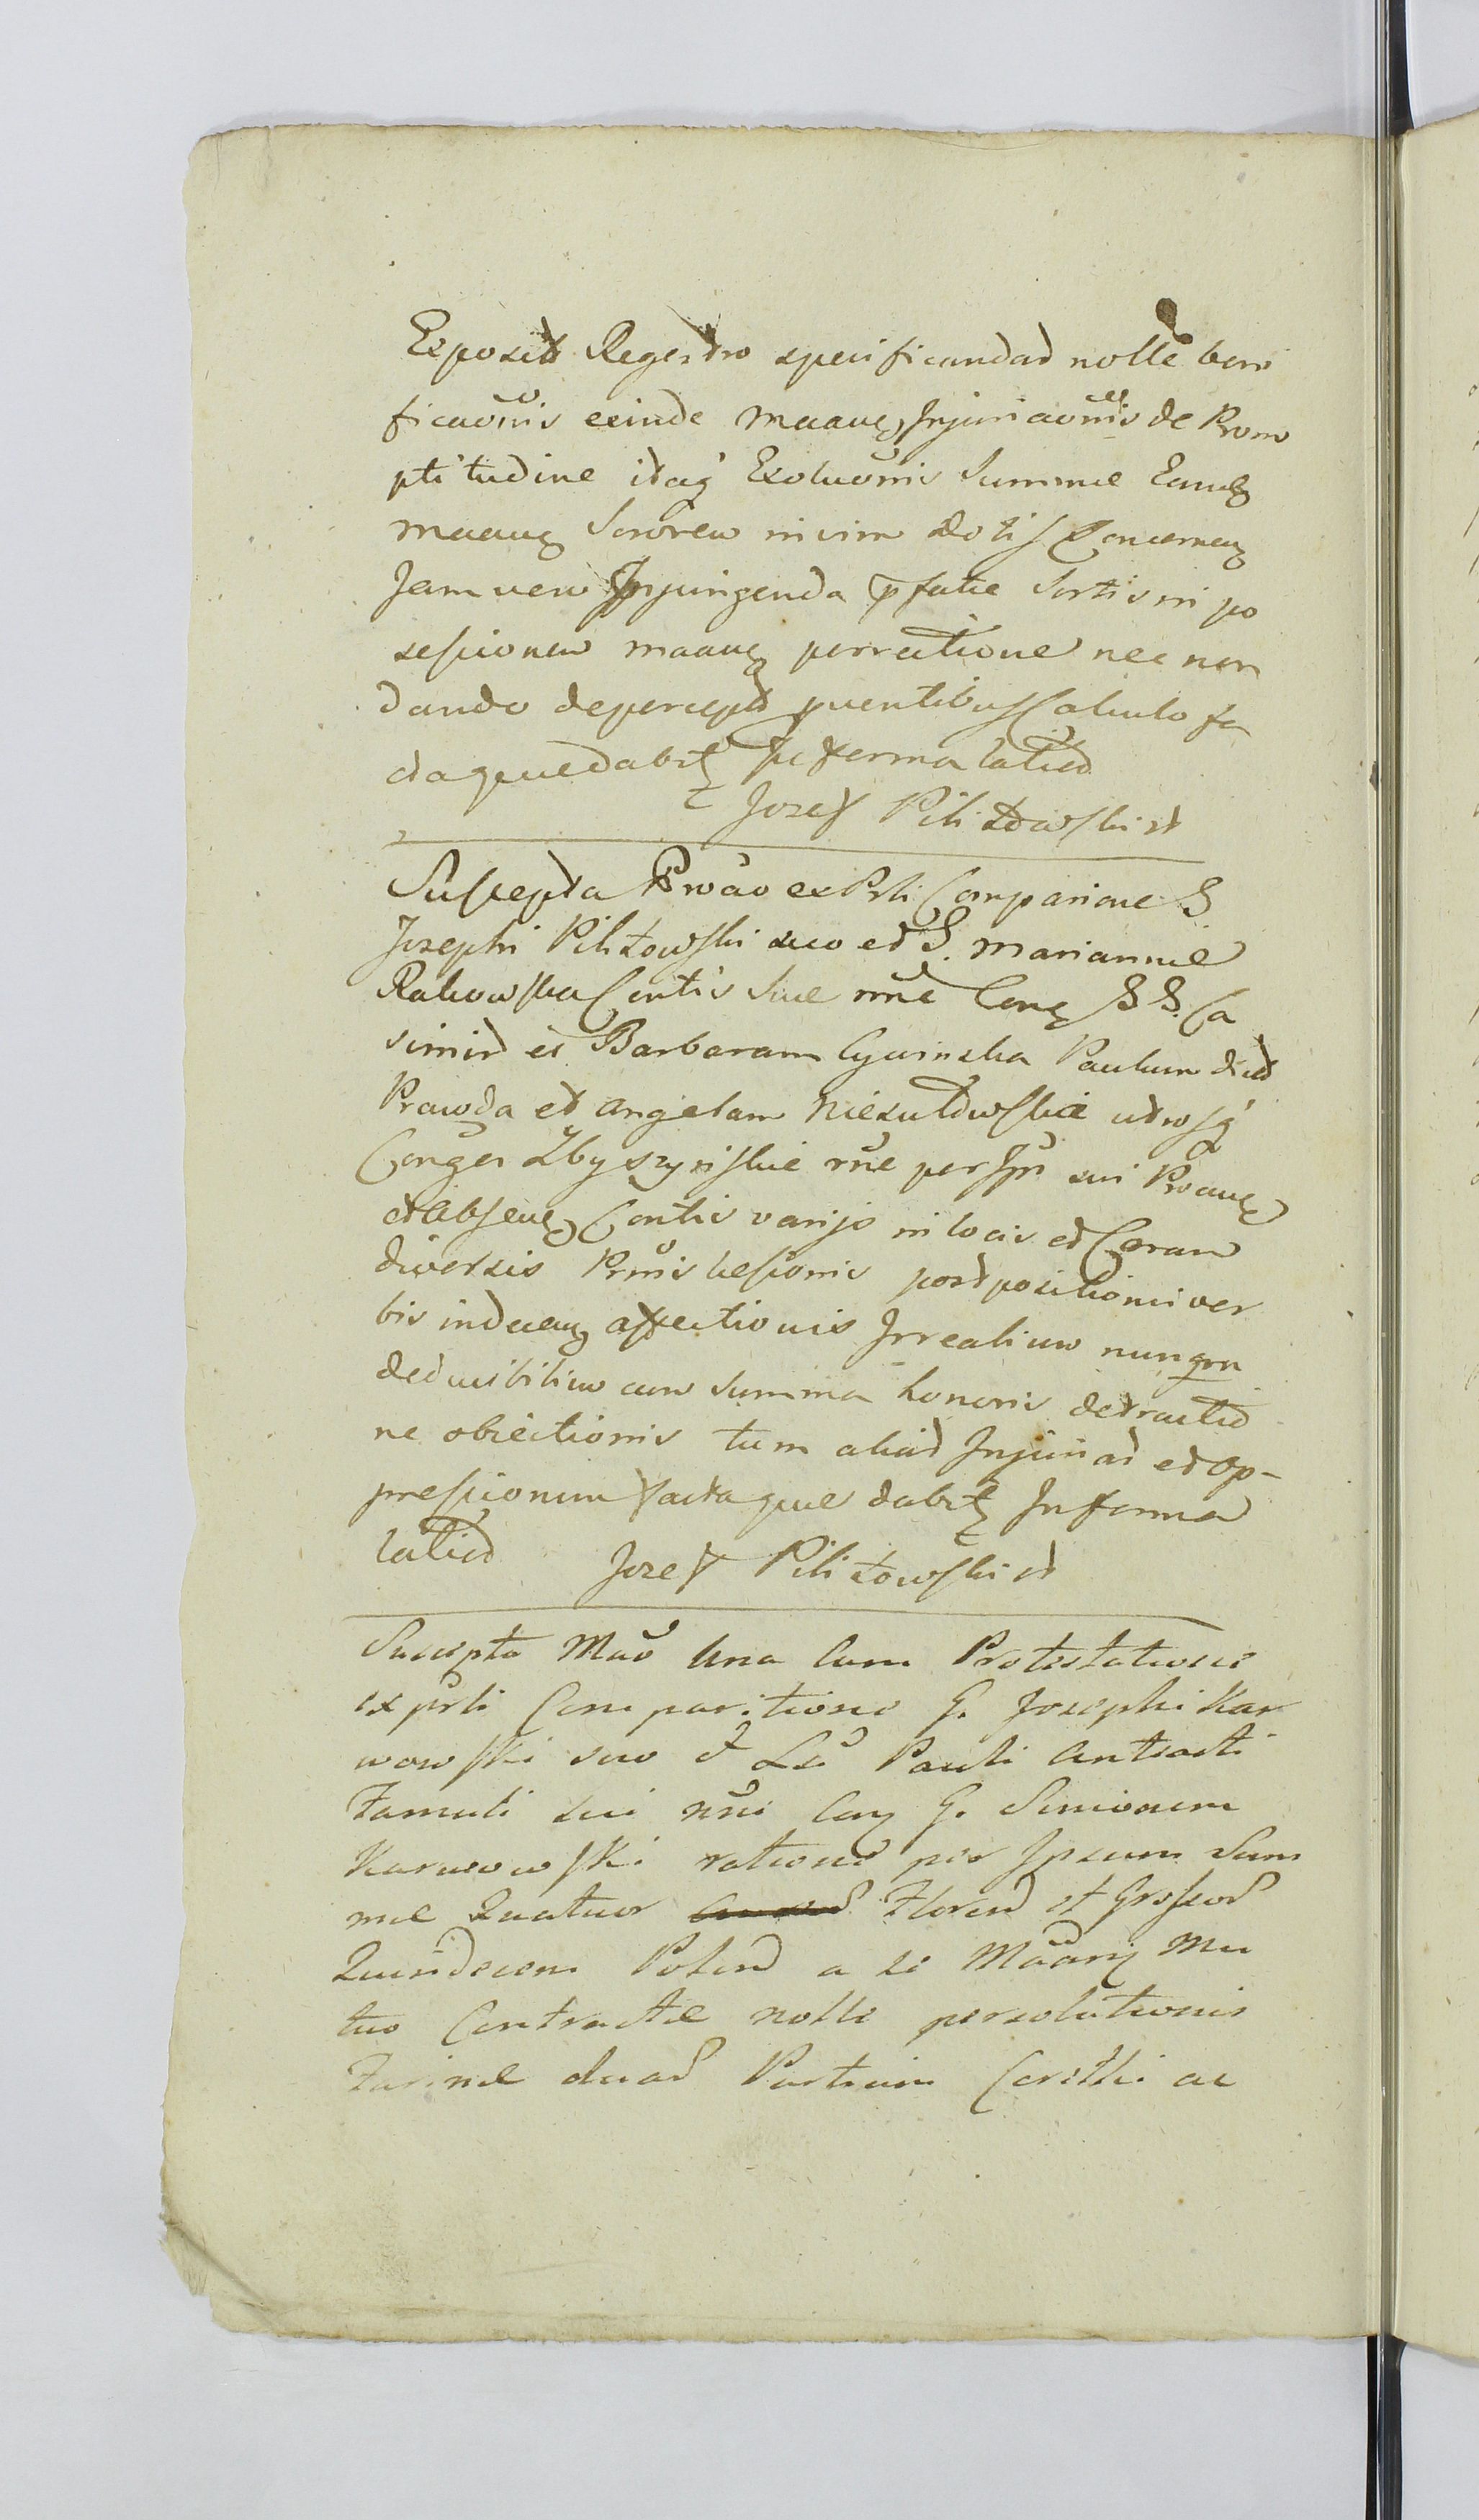 Exposit Regestro specificandas nolle boni
ficaōnis exinde Maanẽ Injuriaōnis de Prom
ptitudine itaq̃ Exoluōnis Summe Eand
maanẽ Sororem in vim dotis Concernen
Jam vero Injungenda p̃fatie Sortis in po
sessionem maanẽ perreatione nec non
dando de percept puentibus Calculo fa
cta que dabitꝛ In forma latiod
Jozef Pilitowski st
Suscepta Prōao ex Prli Comparione G
Josephi Pilitowski suo et G. Marianne
Rakowska Contis Sue nn̄e Conꝛ GG. Ca
simird et Barbaram Cywinska Paulum dict
Prawda et Angelam Niezutowskie utrosq̃
Conges Zbyszynskie rn̄e per Ipn̄ sui Proanẽ
et absenẽ Contis varijs in locis et Coram
diversis Prn̄is lesionis postpositioni ver
bis indecenꝛ affectionis Irrealium nunqm
deducibilium cum Summa honoris detractio
ne obiectionis tum aliad Injuriad et op-
pressionum facta que dabitꝛ In forma
latiod Jozef Pilitowski st
Suscepta Mao Una Cum Protestatione
ex prli Comparitione G. Josephi Kar
wowski suo et La Pauli Antiacti
Famuli sui nn̄i Conꝛ G. Simionem
Karwowski ratione per Ipsum Sum
me Quatuor Floreno et Grossor
Quindecem Polono a se Māanꝛ Mu
tuo Contracte nolle persolutionis
Farine duar Partium Coretti ac